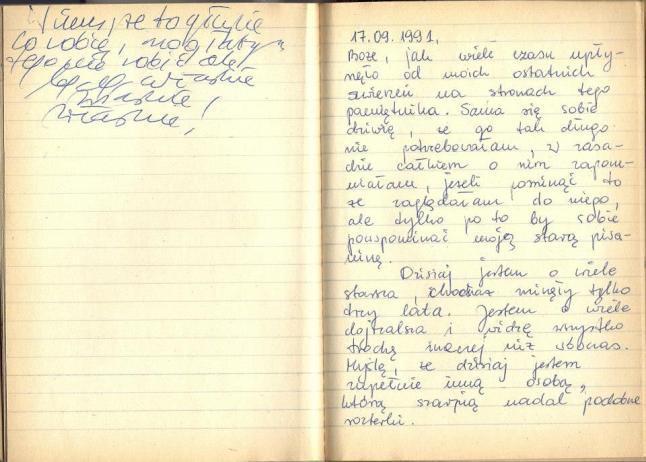 Wiem, że to głupie
co robię, mogłaby
tego nie robić ale
właśnie
właśnie!
właśnie!
17.09.1991.
Boże, jak wiele czasu upły-
nęło od moich ostatnich
zwierzeń na stronach tego
pamiętnika. Sama się sobie
dziwię, że go tak długo
nie potrzebowałam, w zasa-
dzie całkiem o nim zapom-
niałam, jeżeli pominąć to
że zaglądałam do niego,
ale tylko po to by sobie
powspominać moją starą pisa-
ninę.
Dzisiaj jestem o wiele
starsza, chociaż minęły tylko
trzy lata. Jestem o wiele
dojrzalsza i widzę wszystko
trochę inaczej niż wówczas.
Myślę, że dzisiaj jestem
zupełnie inną osobą,
którą szarpią nadal podobne
rozterki.